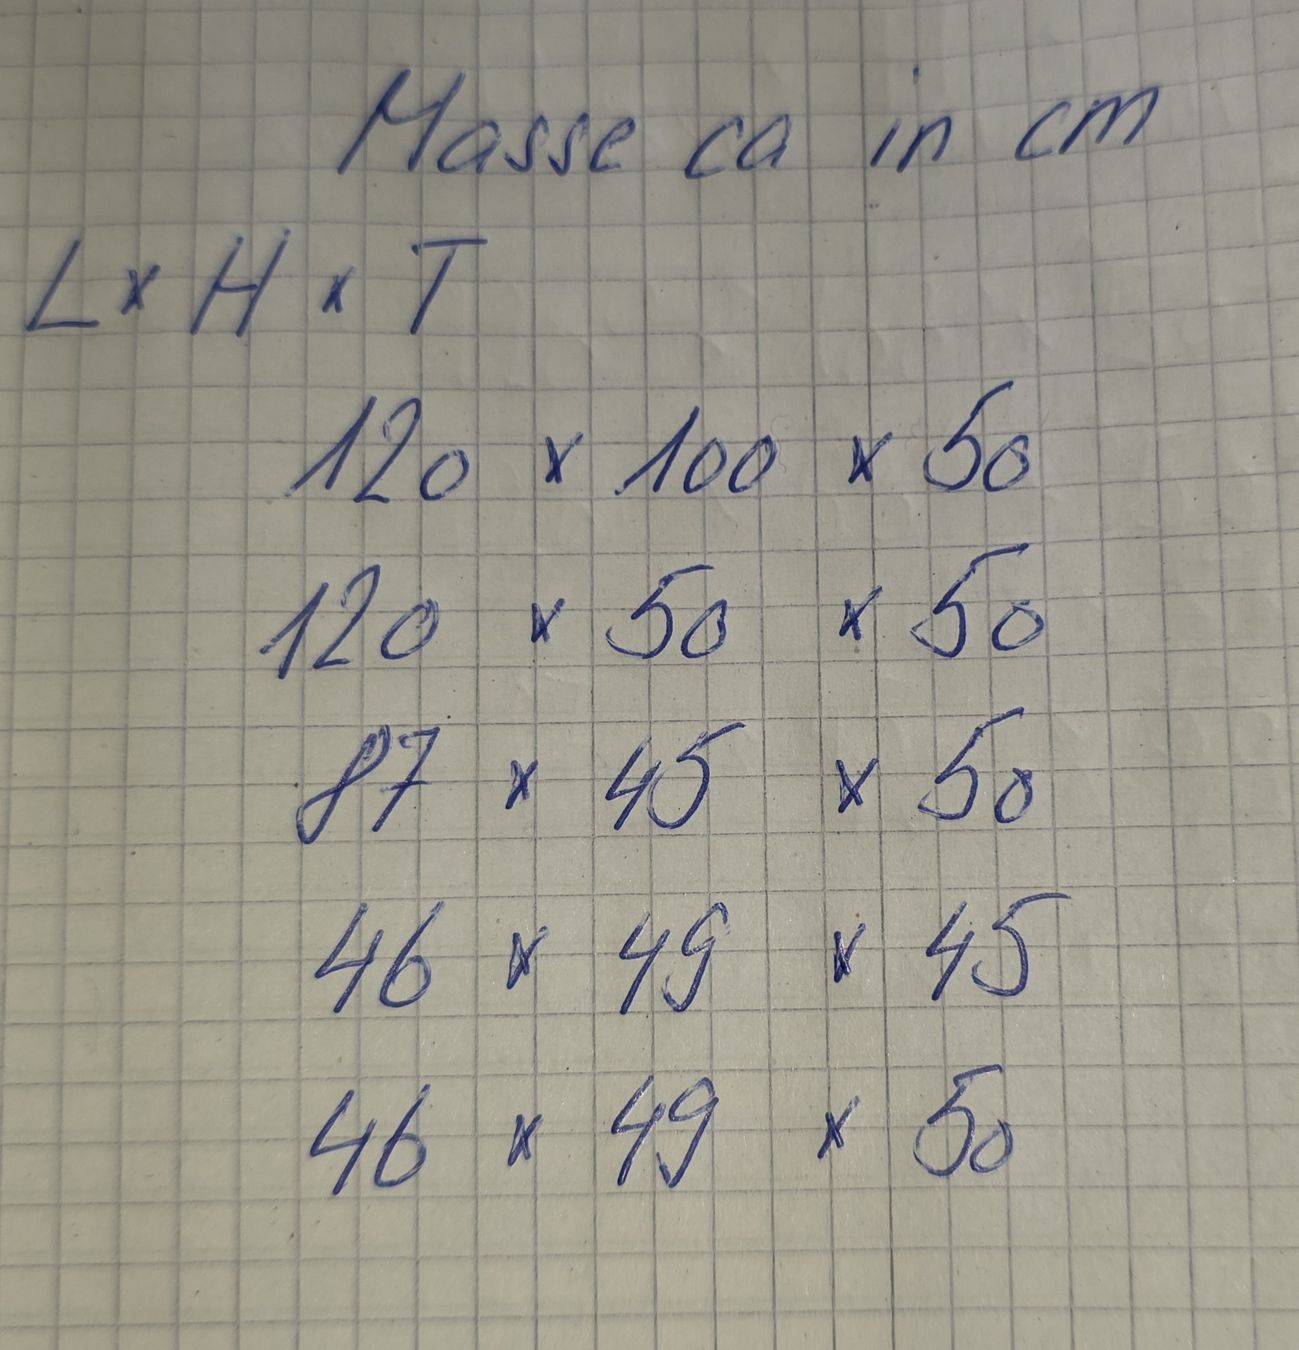 Masse ca in cm
L x H x T
120 x 100 x 50
120 x 50 x 50
87 x 45 x 50
46 x 49 x 45
46 x 49 x 50